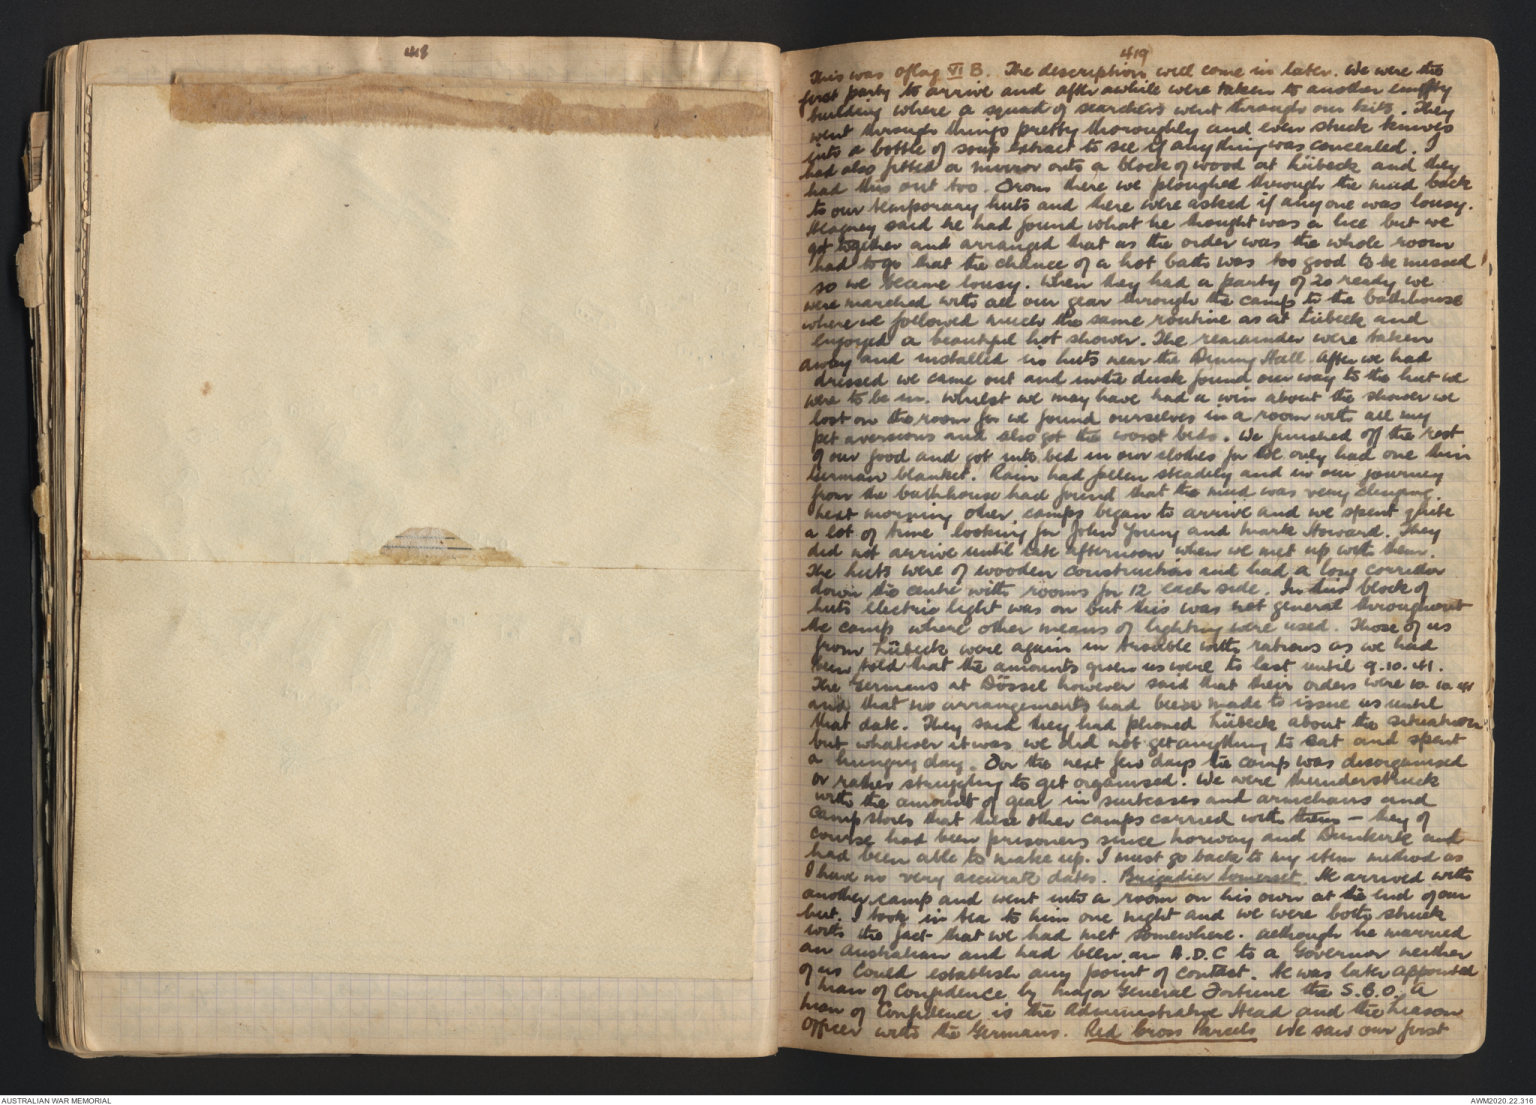 418
419
This was Oflag VI B. The description will come in later. We were the
first party to arrive and after awhile were taken to another empty
building where a squad of searchers went through our kits. They
went through things pretty thoroughly and even stuck knives
into a bottle of soup extract to see if anything was concealed. I
had also fitted a mirror onto a block of wood at Lübeck and they
had this out too. From there we ploughed through the mud back
to our temporary huts and here were asked if any one was lousy.
Magney said he had found what he thought was a lice but we
got together and arranged that as the order was the whole room
had to go that the chance of a hot bath was too good to be missed
so we became lousy. When they had a party of 20 ready we
were marched with all our gear through the camp to the bathhouse
where we followed much the same routine as at Lübeck and
enjoyed a beautiful hot shower. The remainder were taken
away and installed in huts near the Dining Hall. After we had
dressed we came out and in the dusk found our way to the hut we
were to be in. Whilst we may have had a win about the shower we
lost on the room for we found ourselves in a room with all my
pet aversions and also got the worst beds. We finished off the rest
of our food and got into bed in our clothes for we only had one thin
German blanket. Rain had fallen steadily and in our journey
from the bathhouse had found that the mud was very clinging.
Next morning other camps began to arrive and we spent quite
a lot of time looking for John Young and Mark Howard. They
did not arrive until late afternoon when we met up with them.
The huts were of wooden construction and had a long corridor
down the centre with rooms for 12 each side. In this block of
huts electric light was on but this was not general throughout
the camp where other means of lighting were used. Those of us
from Lübeck were again in trouble with rations as we had
been told that the amounts given us were to last until 9.10.41.
The Germans at Dössel however said that their orders were 10.10.41
and that no arrangements had been made to issue us until
that date. They said they had phoned Lübeck about the situation
but whatever it was we did not get anything to eat and spent
a hungry day. For the next few days the camp was disorganised
or rather struggling to get organised. We were thunderstruck
with the amount of gear in suitcases and armchairs and
camp stores that these other camps carried with them – they of
course had been prisoners since Norway and Dunkirk and
had been able to make up. I must go back to my item method as
I have no very accurate dates. Brigadier Somerset. He arrived with
another camp and went into a room on his own at the end of our
hut. I took in tea to him one night and we were both struck
with the fact that we had met somewhere. Although he married
an Australian and had been an A.D.C to a Governor neither
of us could establish any point of contact. He was later appointed
Man of Confidence by Major General Fortune the S.B.O. A
Man of Confidence is the Administrative Head and the Liaison
Officer with the Germans. Red Cross Parcels We saw our first
AUSTRALIAN WAR MEMORIAL
AWM2020.22.316